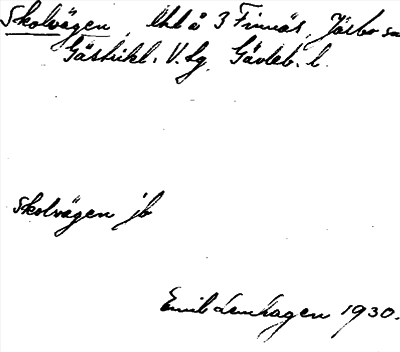 Skolvägen, lht å 3 Finnäs, Järbo sn
Gästrikl. V. tg, Gävleb. l.
Skolvägen jb
Emil Lenhagen 1930.